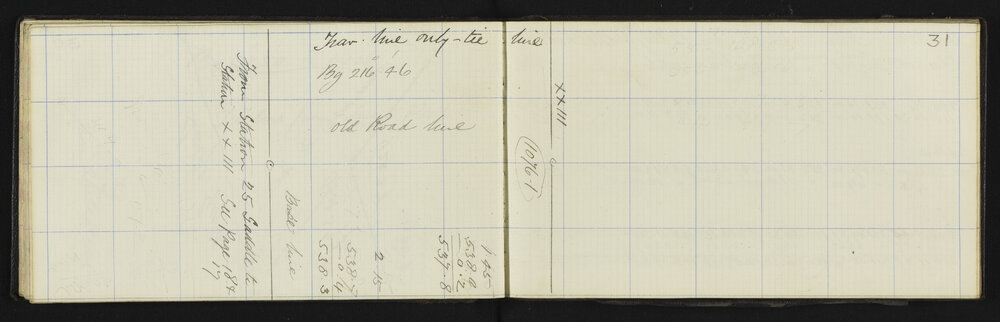 31
Trav. line only - tie line
Bg 216° 46'
old Road line
XXIII
1076.1
1.45
538.0
0.2
537.8
2.15
538.7
0.4
538.3
Base line
From Station 25 Saddle to
Station XXIII See Page 18 &
17